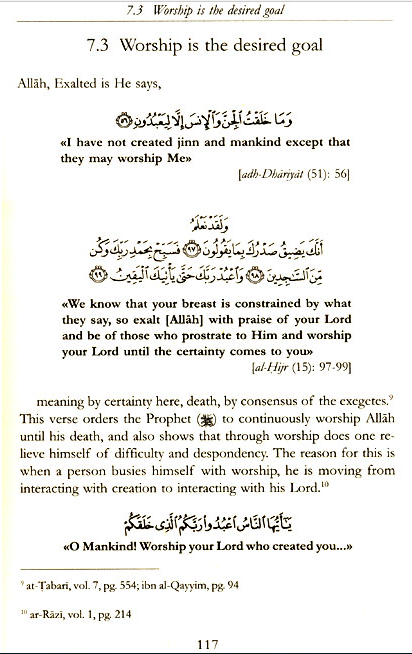 7.3 Worship is the desired goal
7.3 Worship is the desired goal
Allāh, Exalted is He says,
وَمَا خَلَقْتُ ٱلْجِنَّ وَٱلْإِنسَ إِلَّا لِيَعْبُدُونِ ﴿٥٦﴾
«I have not created jinn and mankind except that
they may worship Me»
[adh-Dhāriyāt (51): 56]
وَلَقَدْ نَعْلَمُ
أَنَّكَ يَضِيقُ صَدْرُكَ بِمَا يَقُولُونَ ﴿٩٧﴾ فَسَبِّحْ بِحَمْدِ رَبِّكَ وَكُن
مِّنَ ٱلسَّٰجِدِينَ ﴿٩٨﴾ وَٱعْبُدْ رَبَّكَ حَتَّىٰ يَأْتِيَكَ ٱلْيَقِينُ ﴿٩٩﴾
«We know that your breast is constrained by what
they say, so exalt [Allāh] with praise of your Lord
and be of those who prostrate to Him and worship
your Lord until the certainty comes to you»
[al-Ḥijr (15): 97-99]
meaning by certainty here, death, by consensus of the exegetes.⁹
This verse orders the Prophet (ﷺ) to continuously worship Allāh
until his death, and also shows that through worship does one re-
lieve himself of difficulty and despondency. The reason for this is
when a person busies himself with worship, he is moving from
interacting with creation to interacting with his Lord.¹⁰
يَٰٓأَيُّهَا ٱلنَّاسُ ٱعْبُدُوا۟ رَبَّكُمُ ٱلَّذِى خَلَقَكُمْ
«O Mankind! Worship your Lord who created you...»
⁹ at-Tabarī, vol. 7, pg. 554; ibn al-Qayyim, pg. 94
¹⁰ ar-Rāzī, vol. 1, pg. 214
117